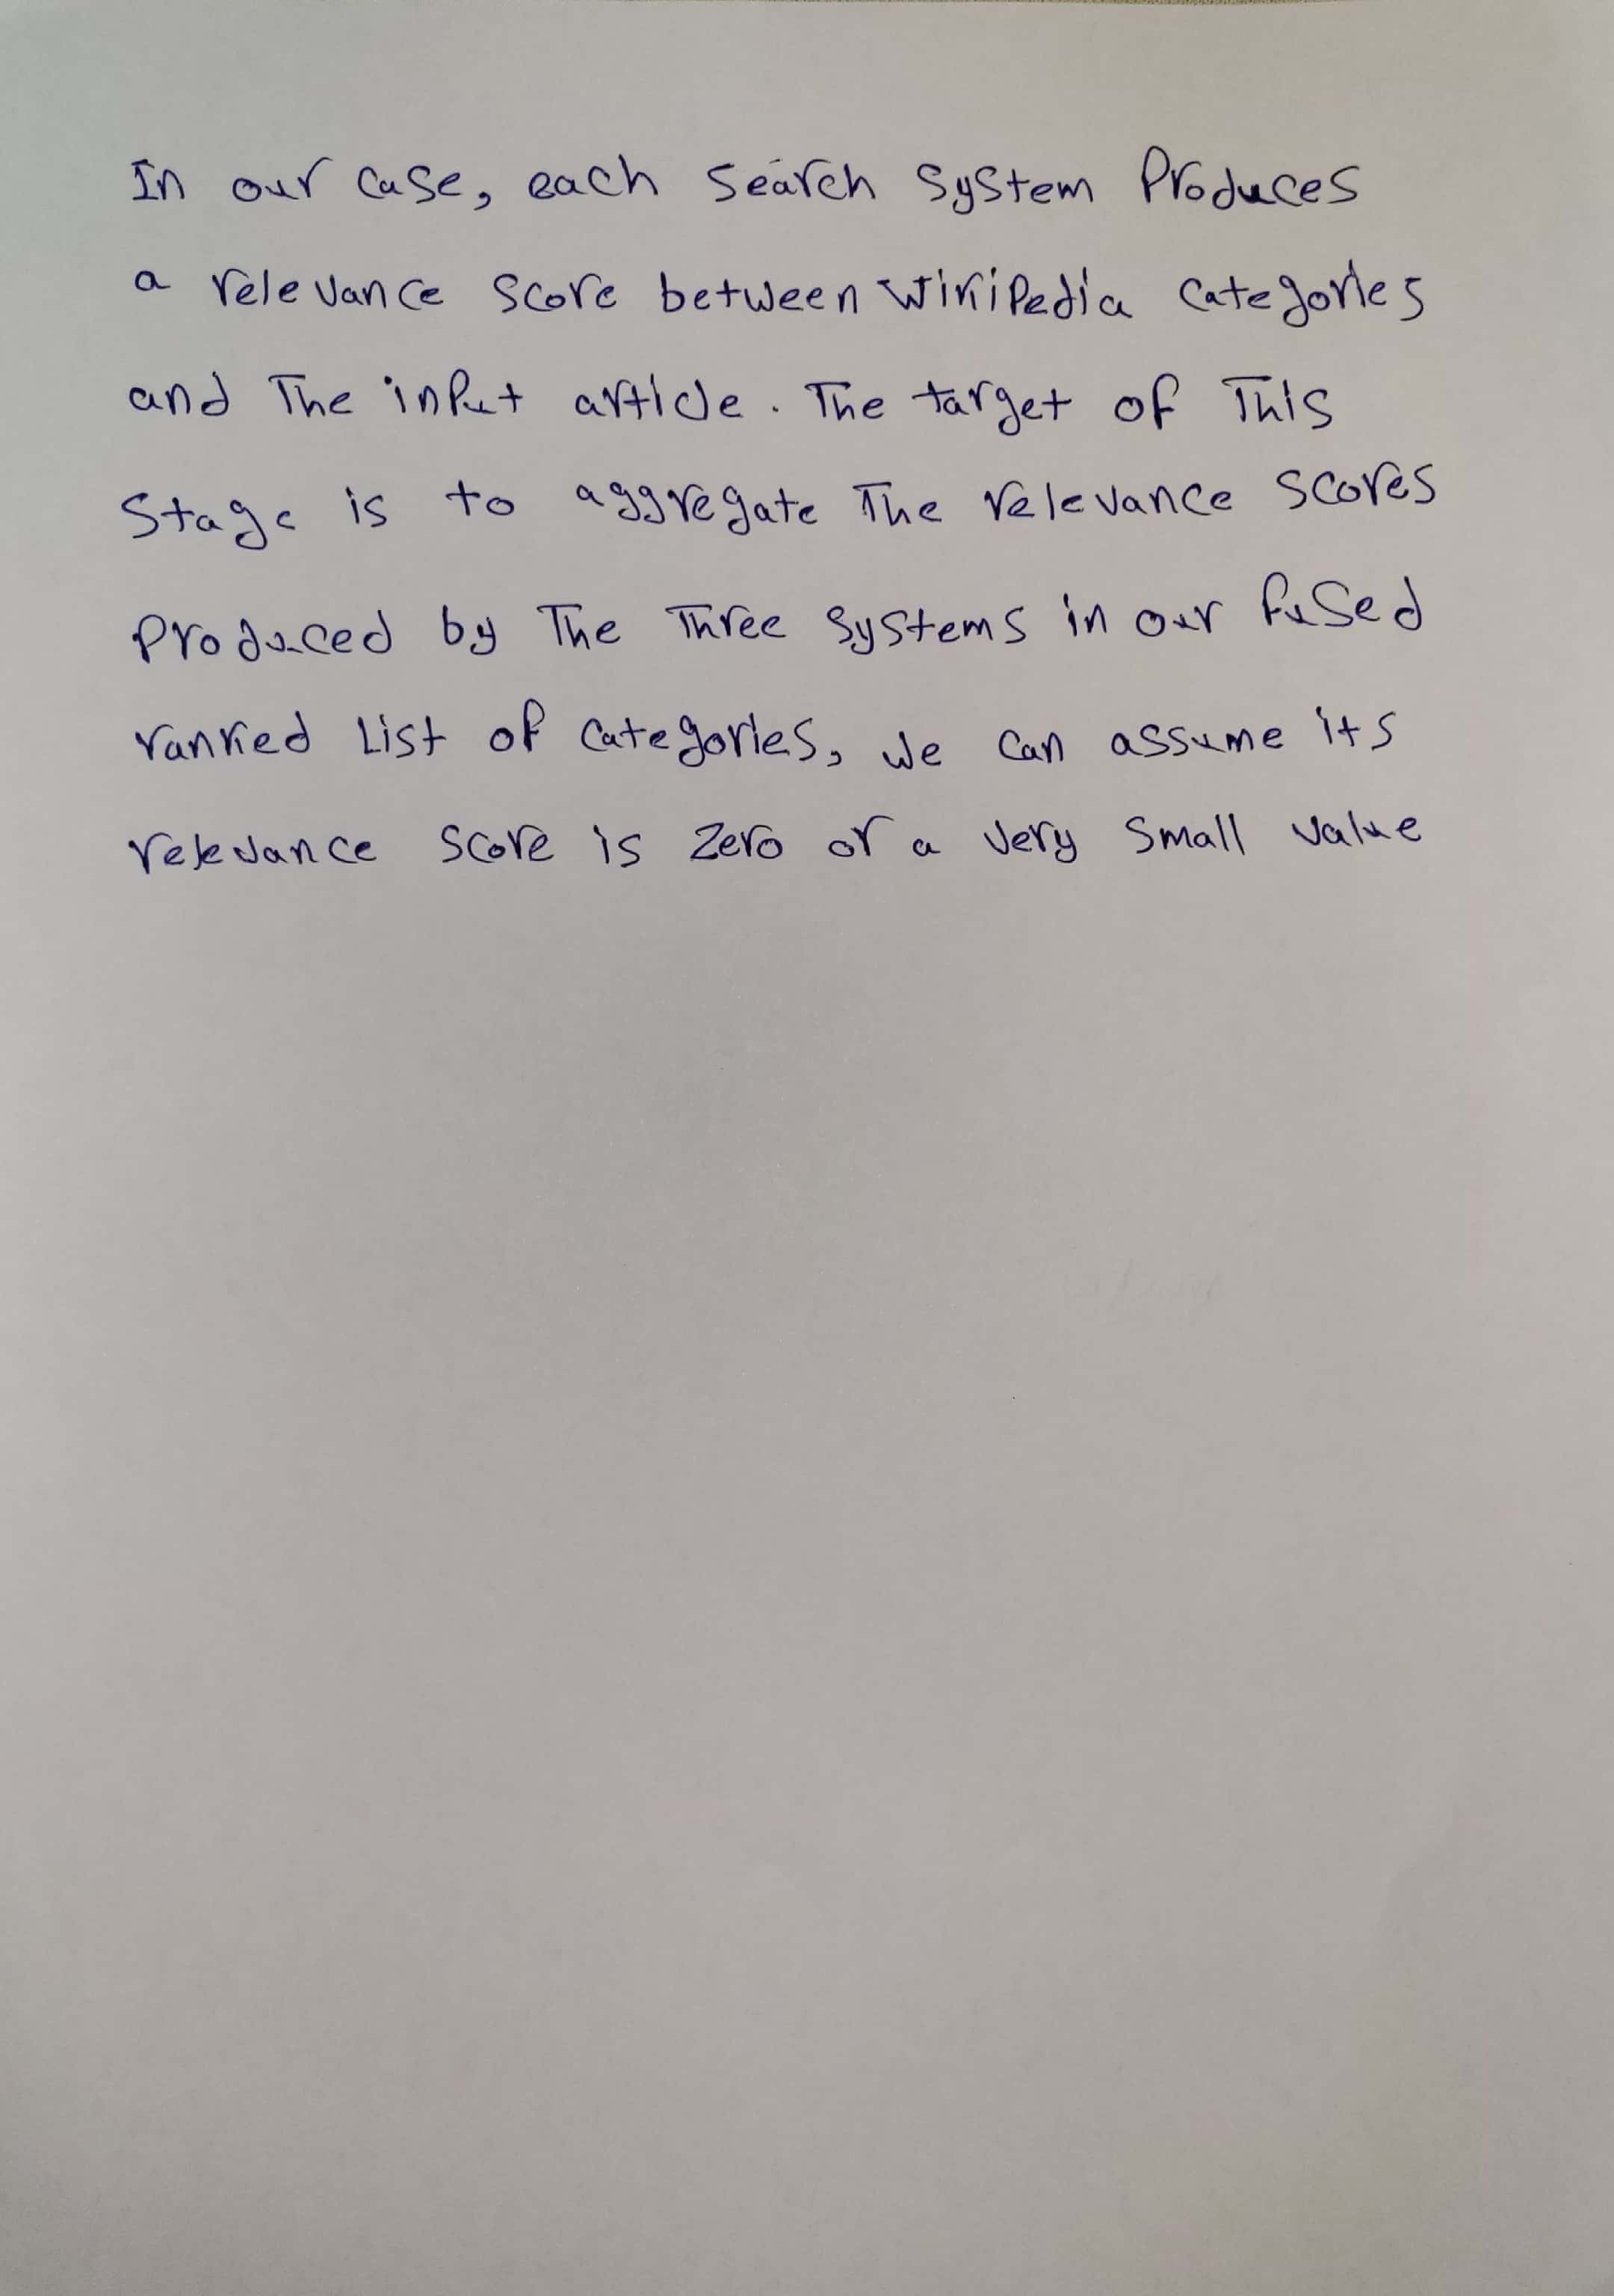 In our case, each search system produces
a relevance score between wikipedia categories
and The input article. The target of This
stage is to aggregate The relevance scores
produced by The Three systems in our fused
ranked List of categories, we can assume its
relevance score is zero or a very small value